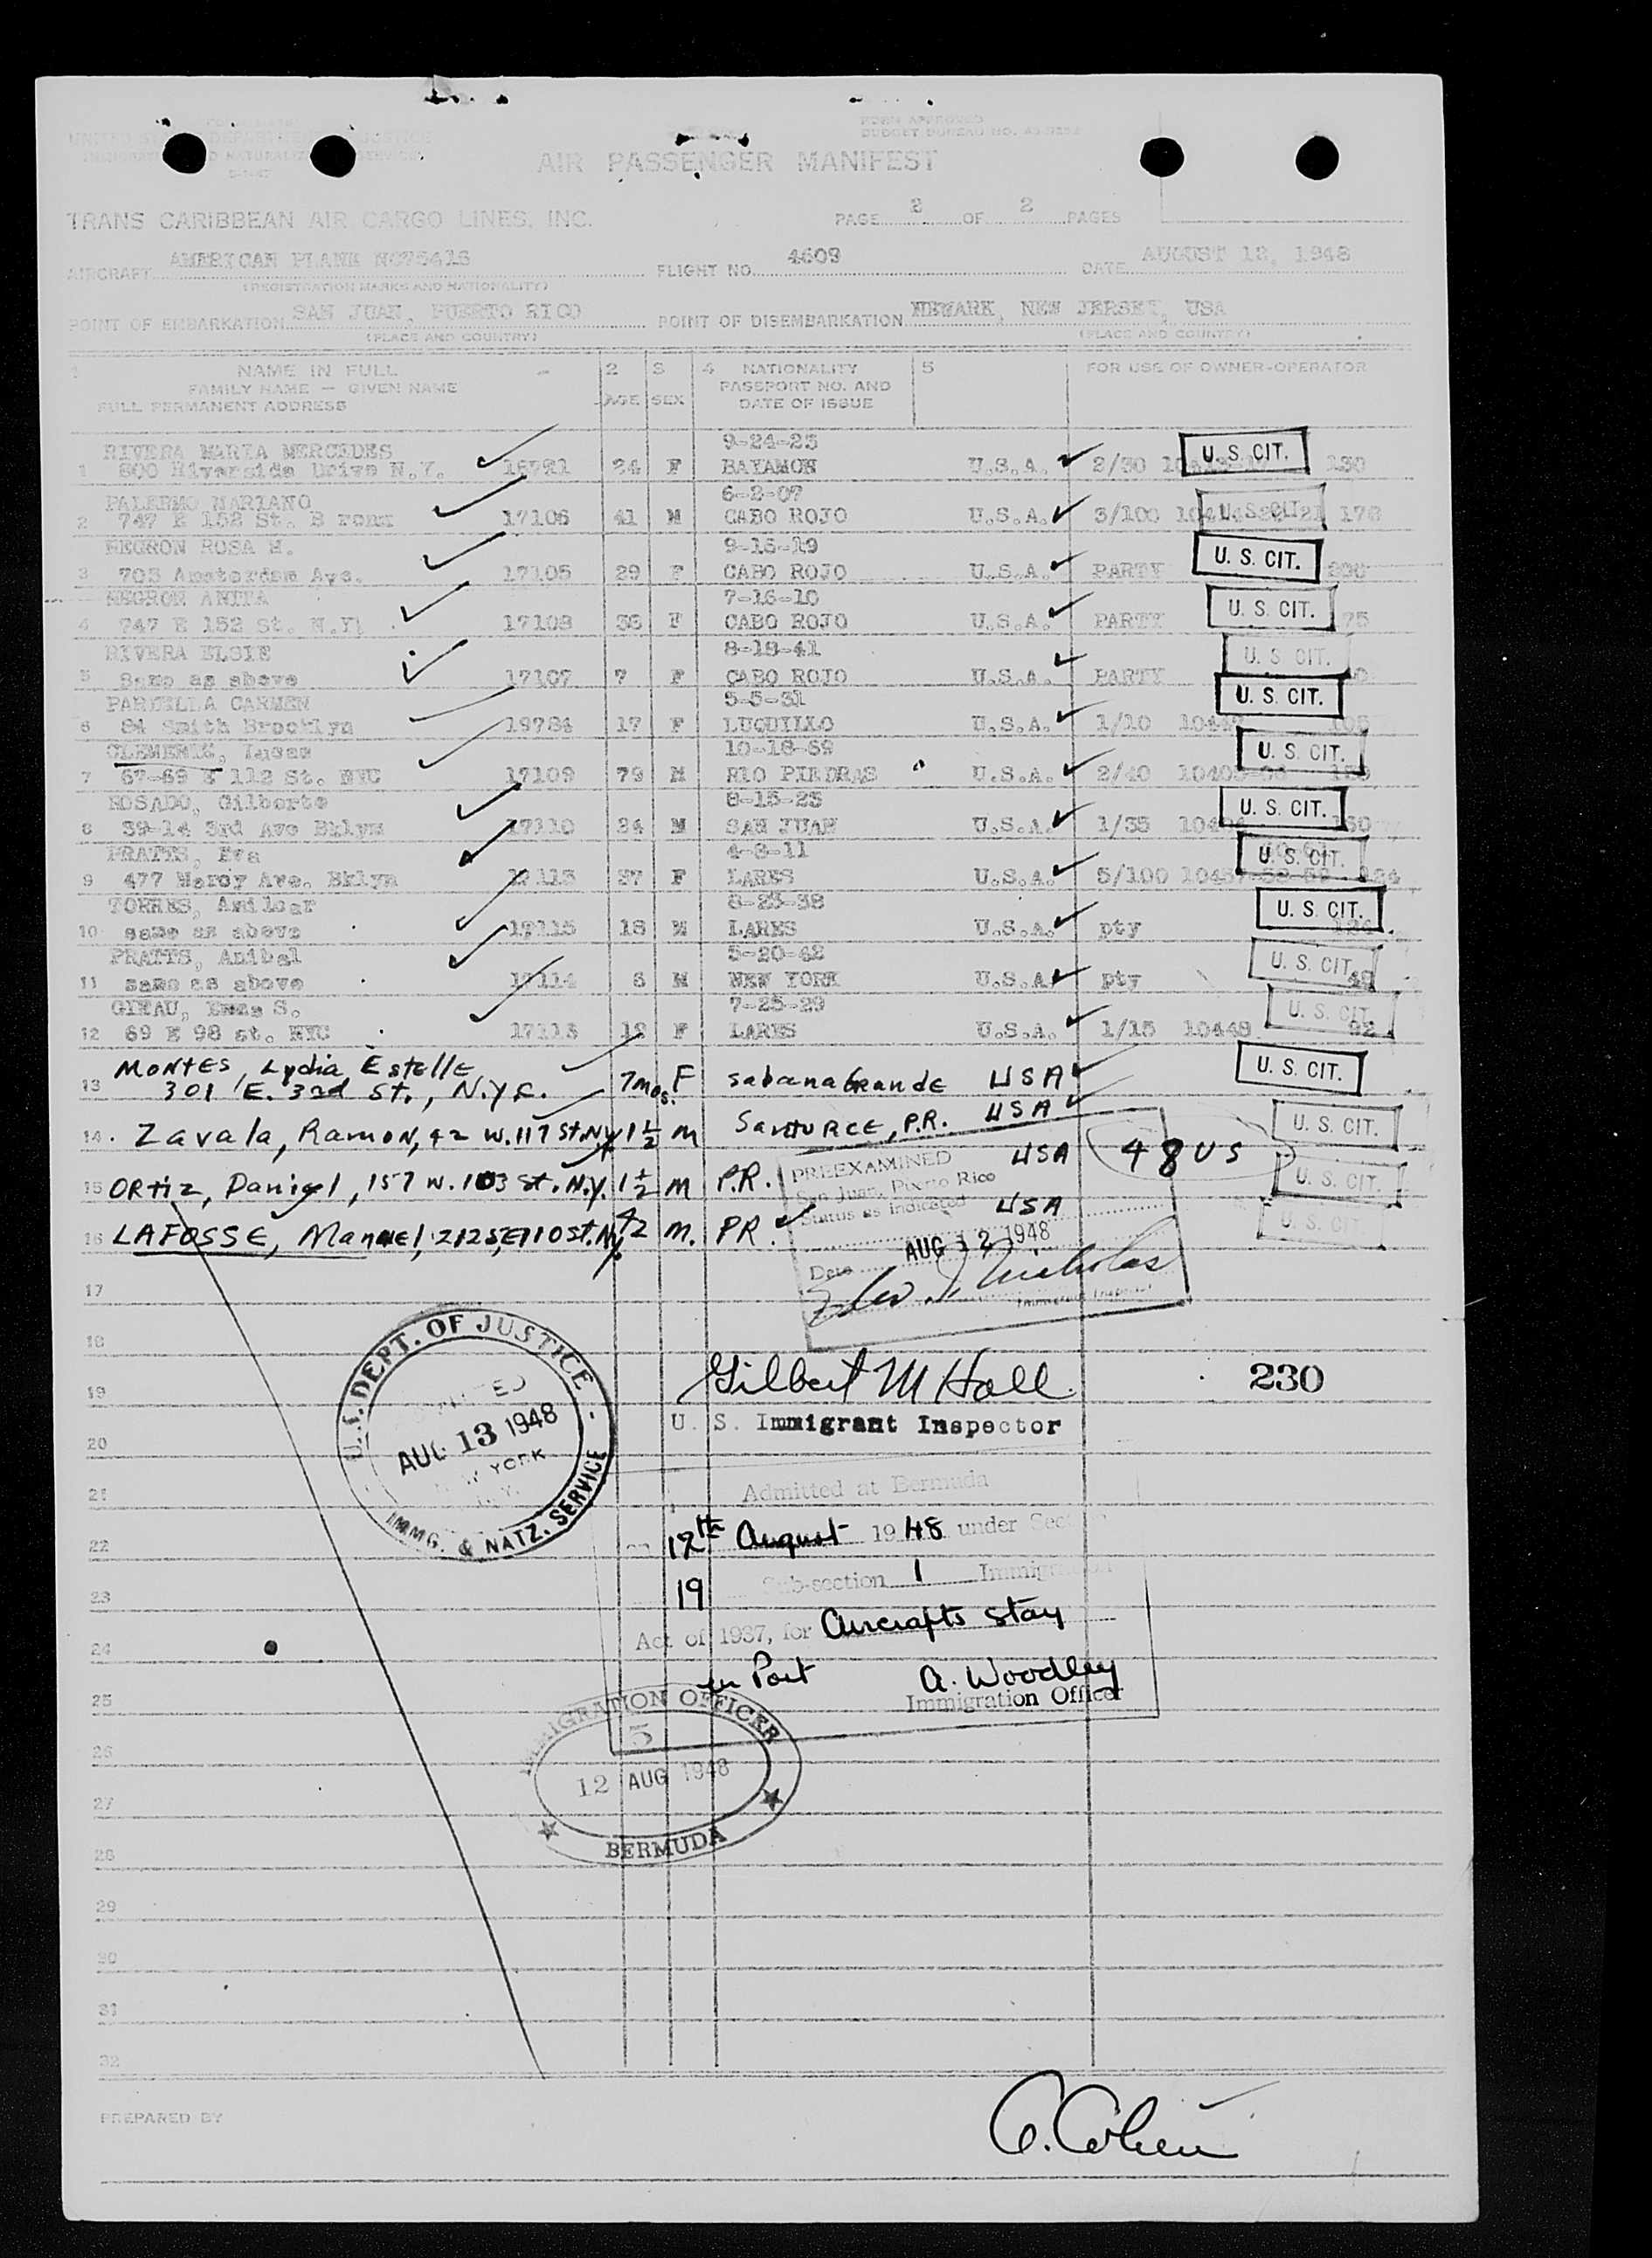 UNITED STATES DEPARTMENT OF JUSTICE
FORM APPROVED
BUDGET BUREAU NO.
AIR PASSENGER MANIFEST
TRANS CARIBBEAN AIR CARGO LINES, INC.
PAGE 2 OF 2 PAGES
AIRCRAFT AMERICAN PLANE FLIGHT NO. 4609 DATE AUGUST 12, 1948
(REGISTRATION MARKS AND NATIONALITY)
POINT OF EMBARKATION SAN JUAN, PUERTO RICO POINT OF DISEMBARKATION NEWARK, NEW JERSEY, USA
(PLACE AND COUNTRY) (PLACE AND COUNTRY)
1 NAME IN FULL 2 3 4 NATIONALITY 5 FOR USE OF OWNER-OPERATOR
FAMILY NAME — GIVEN NAME AGE SEX PASSPORT NO. AND
FULL PERMANENT ADDRESS DATE OF ISSUE
RIVERA MARIA MERCEDES 9-24-23 U. S. CIT.
1 800 Riverside Drive N.Y. 24 F BAYAMON U.S.A. 2/30 130
PALERMO MARIANO 6-2-07 U. S. CIT.
2 747 E 152 St. 17106 41 M CABO ROJO U.S.A. 3/100 178
NEGRON ROSA M. 9-15-19 U. S. CIT.
3 703 Amsterdam Ave. 17105 29 F CABO ROJO U.S.A. PARTY
NEGRON ANITA 7-16-10 U. S. CIT.
4 747 E 152 St. N.Y. 17108 38 F CABO ROJO U.S.A. PARTY 75
RIVERA ELSIE 8-18-41 U. S. CIT.
5 Same as above 17107 7 F CABO ROJO U.S.A. PARTY
CARMEN 5-5-31 U. S. CIT.
6 84 Smith Brooklyn 19784 17 F LUQUILLO U.S.A. 1/10 105
CLEMENTE, Lucas 10-18-69 U. S. CIT.
7 67-69 E 112 St. NYC 17109 79 M RIO PIEDRAS U.S.A. 2/40
ROSADO, Gilberto 8-15-23 U. S. CIT.
8 39-14 3rd Ave Bklyn 17110 24 M SAN JUAN U.S.A. 1/35
PRATTS, Eva 4-3-11 U. S. CIT.
9 477 Marcy Ave. Bklyn 37 F LARES U.S.A. 5/100
TORRES, Amilcar U. S. CIT.
10 same as above M LARES U.S.A. pty
PRATTS, Anibal 5-20-42 U. S. CIT.
11 same as above 6 M NEW YORK U.S.A. pty
GIRAU, S. 7-25-29 U. S. CIT.
12 69 E 98 st. NYC 17113 F LARES U.S.A. 1/15 10448 92
13 MONTES, Lydia Estelle 7mos. F sabana Grande USA U. S. CIT.
301 E. 3rd St., N.Y.C.
14. Zavala, Ramon, 42 W. 117 St. N.Y. 1½ M Santurce, P.R. USA U. S. CIT.
15 ORTIZ, Daniel, 157 W. 103 St. N.Y. 1½ M P.R. USA 48 US U. S. CIT.
16 LAFOSSE, Manuel, 212 E 110 St. N.Y. M. PR. USA U. S. CIT.
PREEXAMINED
San Juan, Puerto Rico
Status as indicated
AUG 12 1948
Date
Immigrant Inspector
17
18
U.S. DEPT. OF JUSTICE
ADMITTED
AUG 13 1948
NEW YORK
N.Y.
IMMG. & NATZ. SERVICE
19 Gilbert M Hall 230
U. S. Immigrant Inspector
20
21 Admitted at Bermuda
22 12th August 1948 under Section
23 19 Sub-section 1 Immigration
24 Act of 1937, for Aircrafts stay
in Port A. Woodley
25 Immigration Officer
IMMIGRATION OFFICER
5
26
12 AUG 1948
27
BERMUDA
28
29
30
31
32
PREPARED BY
C. Cohen